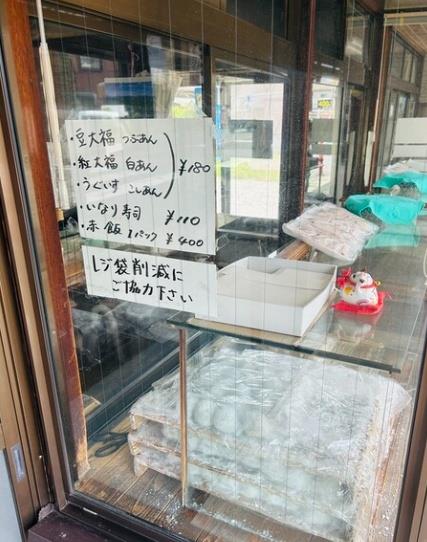 ・豆大福 つぶあん
・紅大福 白あん ¥180
・うぐいす こしあん
・いなり寿司 ¥110
・赤飯 1パック ¥400
レジ袋削減に
ご協力下さい